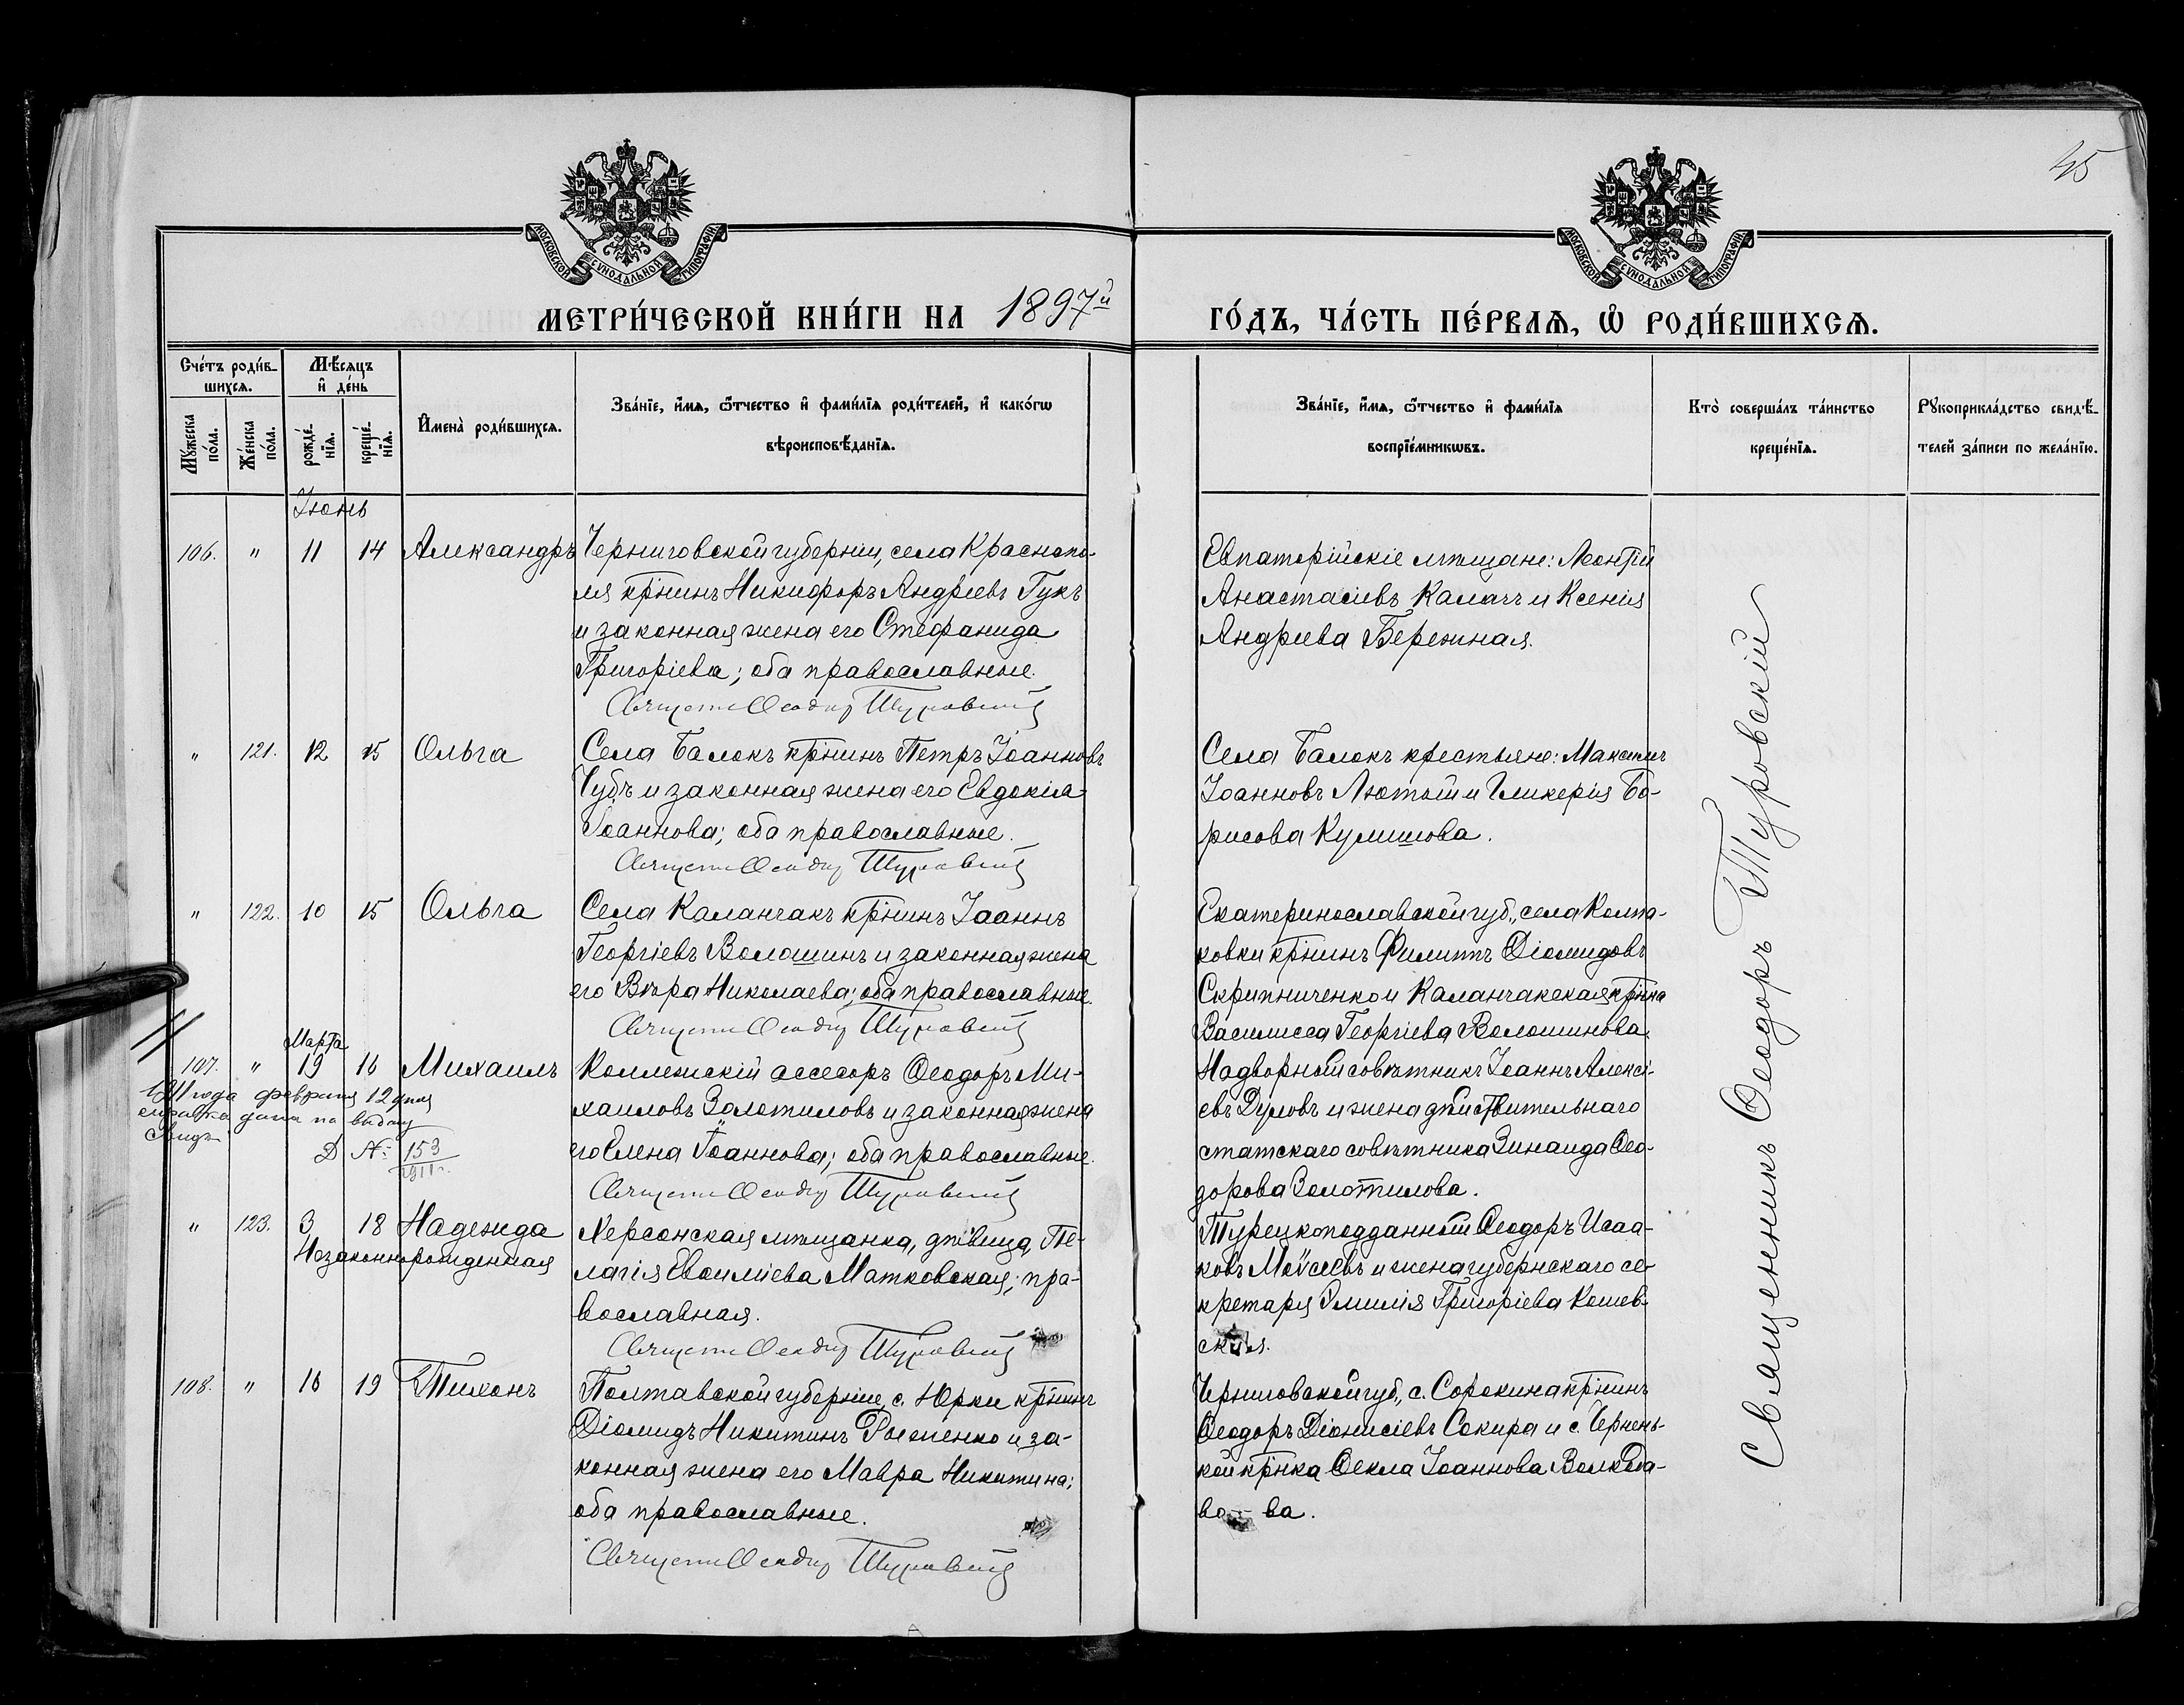 45
МОСКОВСКОЙ СУНОДАЛЬНОЙ ТИПОГРАФІИ
МОСКОВСКОЙ СУНОДАЛЬНОЙ ТИПОГРАФІИ
МЕТРИ́ЧЕСКОЙ КНИ́ГИ НА 1897й ГО́ДЪ, ЧА́СТЬ ПЕ́РВАѦ, Ѡ҆ РОДИ́ВШИХСѦ.
Сче́тъ роди́в-
шихсѧ.
Мꙋ́жеска по́ла.
Же́нска по́ла.
Мѣ́сяцъ
и҆ де́нь
рожде́-
нїѧ.
креще́-
нїѧ.
И҆мена̀ роди́вшихсѧ.
Зва́нїе, и҆́мѧ, ѻ҆́тчество и҆ фами́лїѧ роди́телей, и҆ како́гѡ
вѣроисповѣ́данїѧ.
Зва́нїе, и҆́мѧ, ѻ҆́тчество и҆ фами́лїѧ
воспрїе́мникѡвъ.
Кто̀ соверша́лъ та́инство
креще́нїѧ.
Рꙋкоприкла́дство свидѣ́-
телей за́писи по жела́нїю.
Іюнь
106. " 11 14 Александръ
Черниговской губерніи, села Краснопо-
лія крнинъ Никифоръ Андріевъ Гукъ
и законная жена его Стефанида
Григоріева; оба православные.
Священн Ѳеодор Туровскій
Евпаторійскіе мѣщане: Леонтій
Анастасіевъ Калачъ и Ксенія
Андріева Бережная.
" 121. 12 15 Ольга
Села Балокъ крнинъ Петръ Іоанновъ
Чубъ и законная жена его Евдокія
Іоаннова; оба православные.
Священн Ѳеодор Туровскій
Села Балокъ крестьяне: Максимъ
Іоанновъ Лютый и Гликерія Бо-
рисова Кулишова.
" 122. 10 15 Ольга
Села Каланчакъ крнинъ Іоаннъ
Георгіевъ Волошинъ и законная жена
его Вѣра Николаева; оба православные.
Священн Ѳеодор Туровскій
Екатеринославской губ., села Колпа-
ковки крнинъ Филиппъ Діомидовъ
Скрипниченко и Каланчакская крнка
Василисса Георгіева Волошинова.
Марта
107. " 19 16 Михаилъ
1911 года февраля 12 дня
справка дана на выдачу
свид.
Д № 153
1911 г.
Коллежскій ассесоръ Ѳеодоръ Ми-
хаиловъ Золотиловъ и законная жена
его Елена Іоаннова; оба православные.
Священн Ѳеодор Туровскій
Надворный совѣтникъ Іоаннъ Алексі-
евъ Дуловъ и жена дѣйствительнаго
статскаго совѣтника Зинаида Ѳео-
дорова Золотилова.
" 123. 3 18 Надежда
Незаконнорожденная
Херсонская мѣщанка, дѣвица, Пе-
лагія Евоиміева Матковская; пра-
вославная.
Священн Ѳеодор Туровскій
Турецкоподданный Ѳеодоръ Исаа-
ковъ Моѵсеевъ и жена губернскаго се-
кретаря Эмилія Григоріева Кошев-
ская.
108. " 16 19 Тихонъ
Полтавской губерніи, с. Юрки крнинъ
Діомидъ Никитинъ Рогопенко и за-
конная жена его Мавра Никитина;
оба православные.
Священн Ѳеодор Туровскій
Черниговской губ., с. Сорокина крнинъ
Ѳеодоръ Діонисіевъ Сокира и с. Чернень-
кой крнка Ѳекла Іоаннова Волкода-
во-ва.
Священникъ Ѳеодоръ Туровскій